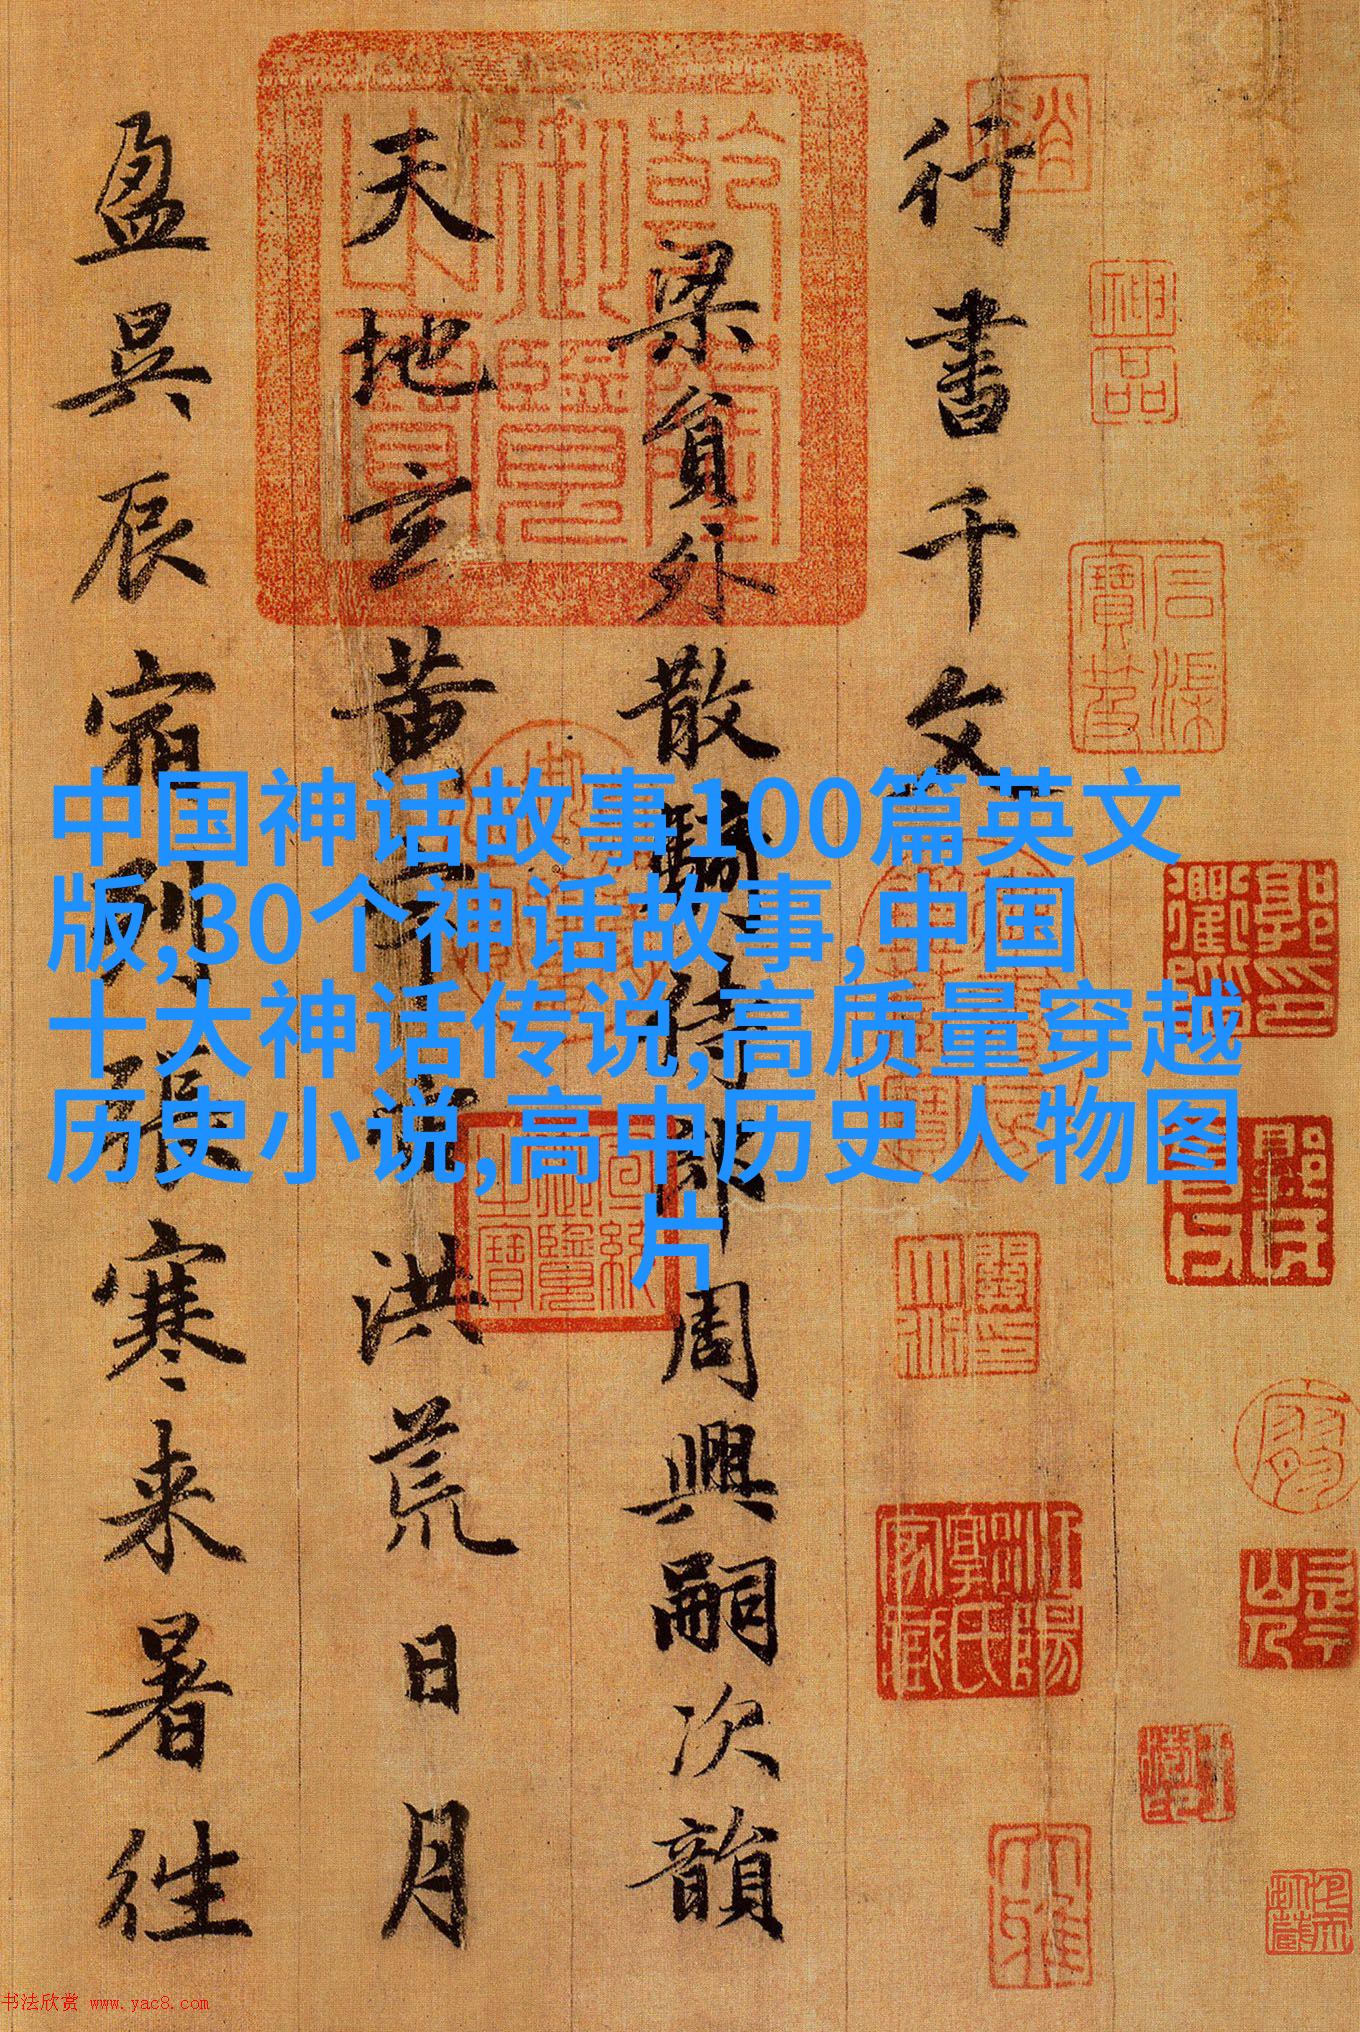 行書千文
梁員外散騎侍郎周興嗣次韻
天地玄黄宇宙洪荒日月
盈昃辰宿列張寒来暑往
中国神话故事100篇英文
版,30个神话故事,中国
十大神话传说,高质量穿越
历史小说,高中历史人物图
片
乾隆御覽之寶
神品
石渠寶笈
书法欣赏 www.yac8.com